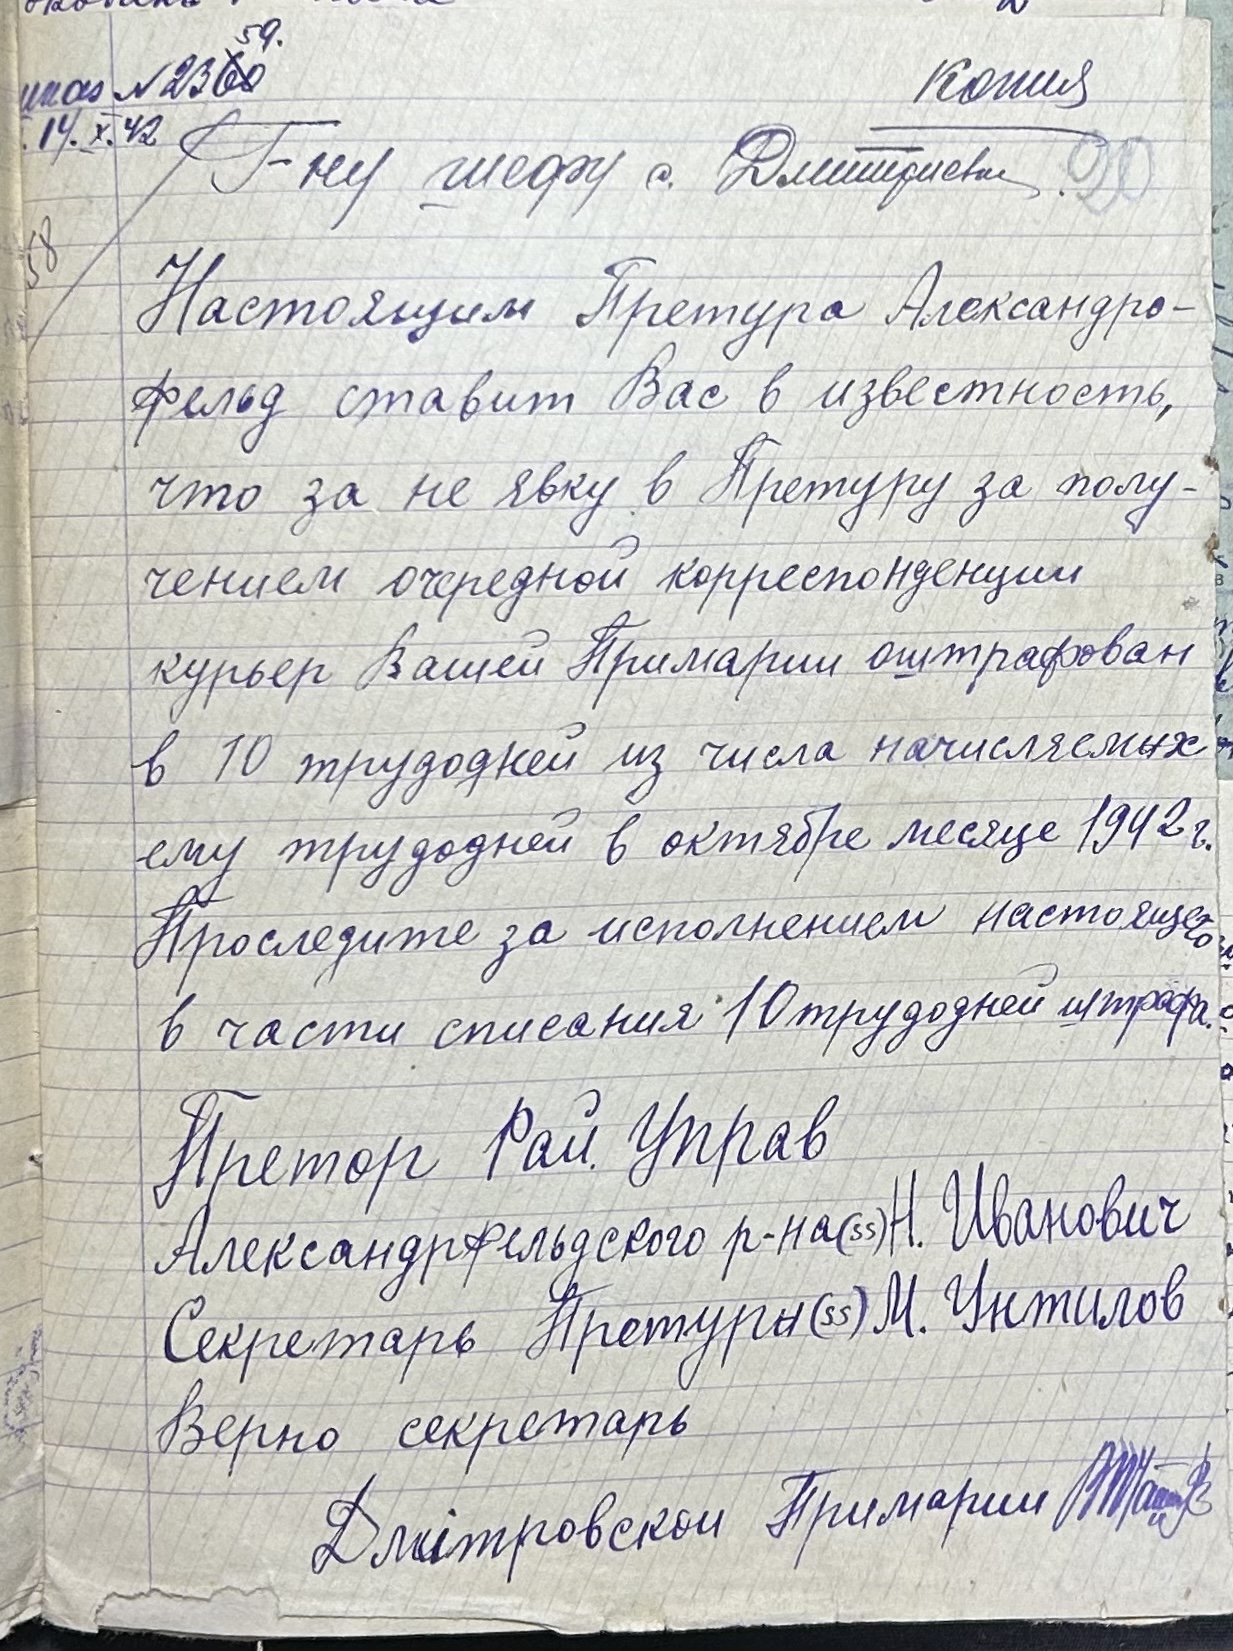 59.
№ 2360
14.X.42
Копия
Г-ну шефу с. Дмитриевки.
90
58
Настоящим Претура Александро-
фельд ставит Вас в известность,
что за не явку в Претуру за полу-
чением очередной корреспонденции
курьер Вашей Примарии оштрафован
в 10 трудодней из числа начисляемых
ему трудодней в октябре месяце 1942 г.
Проследите за исполнением настоящего
в части списания 10 трудодней штрафа.
Претор Рай. Управ
Александрфельдского р-на (ss) Н. Иванович
Секретарь Претуры (ss) М. Унтилов
Верно секретарь
Дмітровской Примарии